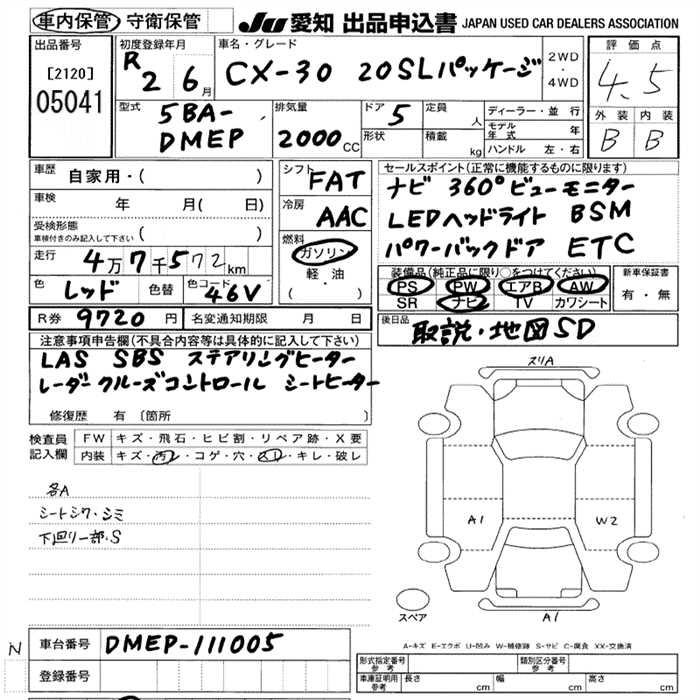 車内保管 守衛保管 JU 愛知 出品申込書 JAPAN USED CAR DEALERS ASSOCIATION
出品番号 初度登録年月 車名・グレード 評価点
[2120] R 2 6月 CX-30 20SLパッケージ 2WD・4WD 4.5
05041 型式 排気量 ドア 定員 ディーラー・並行 外装 内装
5BA- 5 人 モデル年式 年 B B
DMEP 2000CC 形状 積載 kg ハンドル 左・右
車歴 自家用・( ) シフト FAT セールスポイント(正常に機能するものに限ります)
車検 年 月( 日) 冷房 AAC ナビ 360°ビューモニター
受検形態 LEDヘッドライト BSM
車検付きのみ記入して下さい ( ) 燃料 ガソリン パワーバックドア ETC
走行 4万7千572km 軽・油 装備品(純正品に限り○をつけてください) 新車保証書
色 レッド 色替 色コード 46V ( ) PS PW エアB AW 有・無
SR ナビ TV カワシート
R券 9720円 名変通知期限 月 日 後日品 取説・地図SD
注意事項申告欄(不具合内容等は具体的に記入して下さい)
LAS SBS ステアリングヒーター
レーダークルーズコントロール シートヒーター
修復歴 有 〔箇所 〕
検査員 FW キズ・飛石・ヒビ割・リペア跡・X要
記入欄 内装 キズ・汚レ・コゲ・穴・スレ・キレ・破レ
各A
シートシワ・シミ
下回り一部.S
スリA
A1 W2
スペア A1
N 車台番号 DMEP-111005
登録番号
A-キズ E-エクボ U-凹み W-補修跡 S-サビ C-腐食 XX-交換済
形式指定番号 参考 類別区分番号 参考
車庫証明用 参考 長さ cm 幅 cm 高さ cm